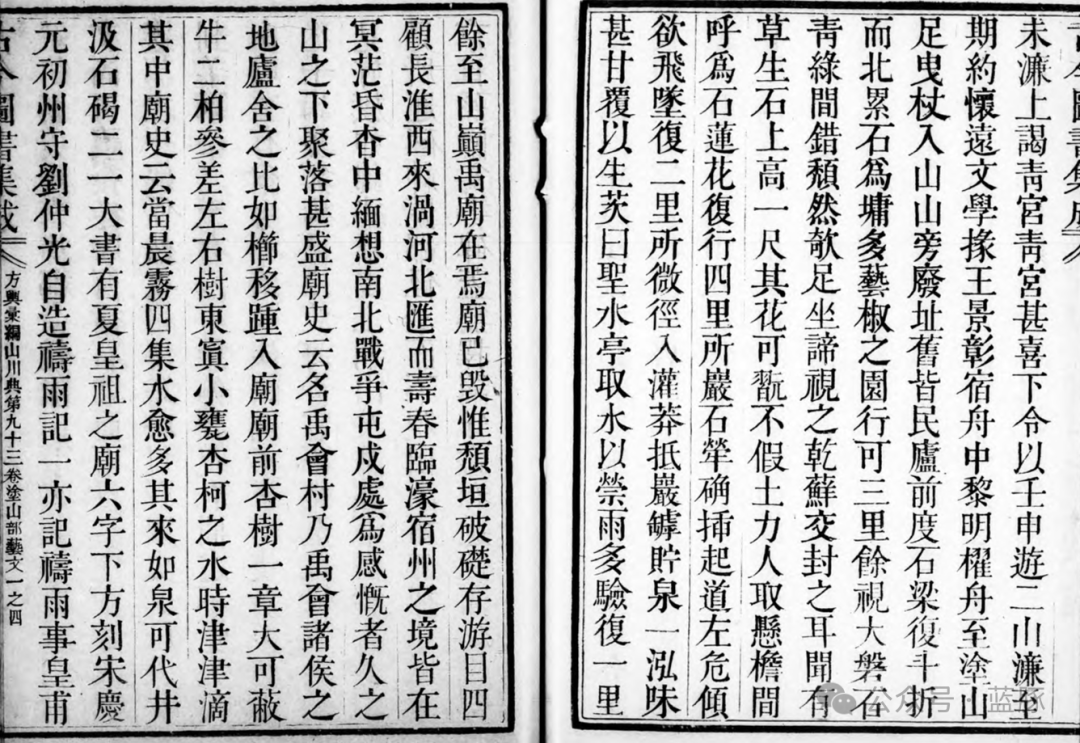 古今圖書集成
未濂上謁靑宮靑宮甚喜下令以壬申遊二山濂至
期約懷遠文學掾王景彰宿舟中黎明櫂舟至塗山
足曳杖入山山旁廢址舊皆民廬前度石梁復斗折
而北累石爲墉多藝椒之園行可三里餘視大磐石
靑綠間錯頽然欹足坐諦視之乾蘚交封之耳聞有
草生石上高一尺其花可翫不假土力人取懸檐間
呼爲石蓮花復行四里所巖石犖确揷起道左危傾
欲飛墜復二里所微徑入灌莽抵巖罅貯泉一泓味
甚甘覆以生茨曰聖水亭取水以禜雨多驗復一里
餘至山巔禹廟在焉廟已毀惟頽垣破礎存游目四
顧長淮西來渦河北匯而壽春臨濠宿州之境皆在
冥茫昏杳中緬想南北戰爭屯戍處爲感慨者久之
山之下聚落甚盛廟史云名禹會村乃禹會諸侯之
地廬舍之比如櫛移踵入廟廟前杏樹一章大可蔽
牛二柏參差左右樹東寘小甕杏柯之水時津津滴
其中廟史云當晨霧四集水愈多其來如泉可代井
汲石碣二一大書有夏皇祖之廟六字下方刻宋慶
元初州守劉仲光自造禱雨記一亦記禱雨事皇甫
古今圖書集成 方輿彙編山川典第九十三卷塗山部藝文一之四
公众号·蓝豕